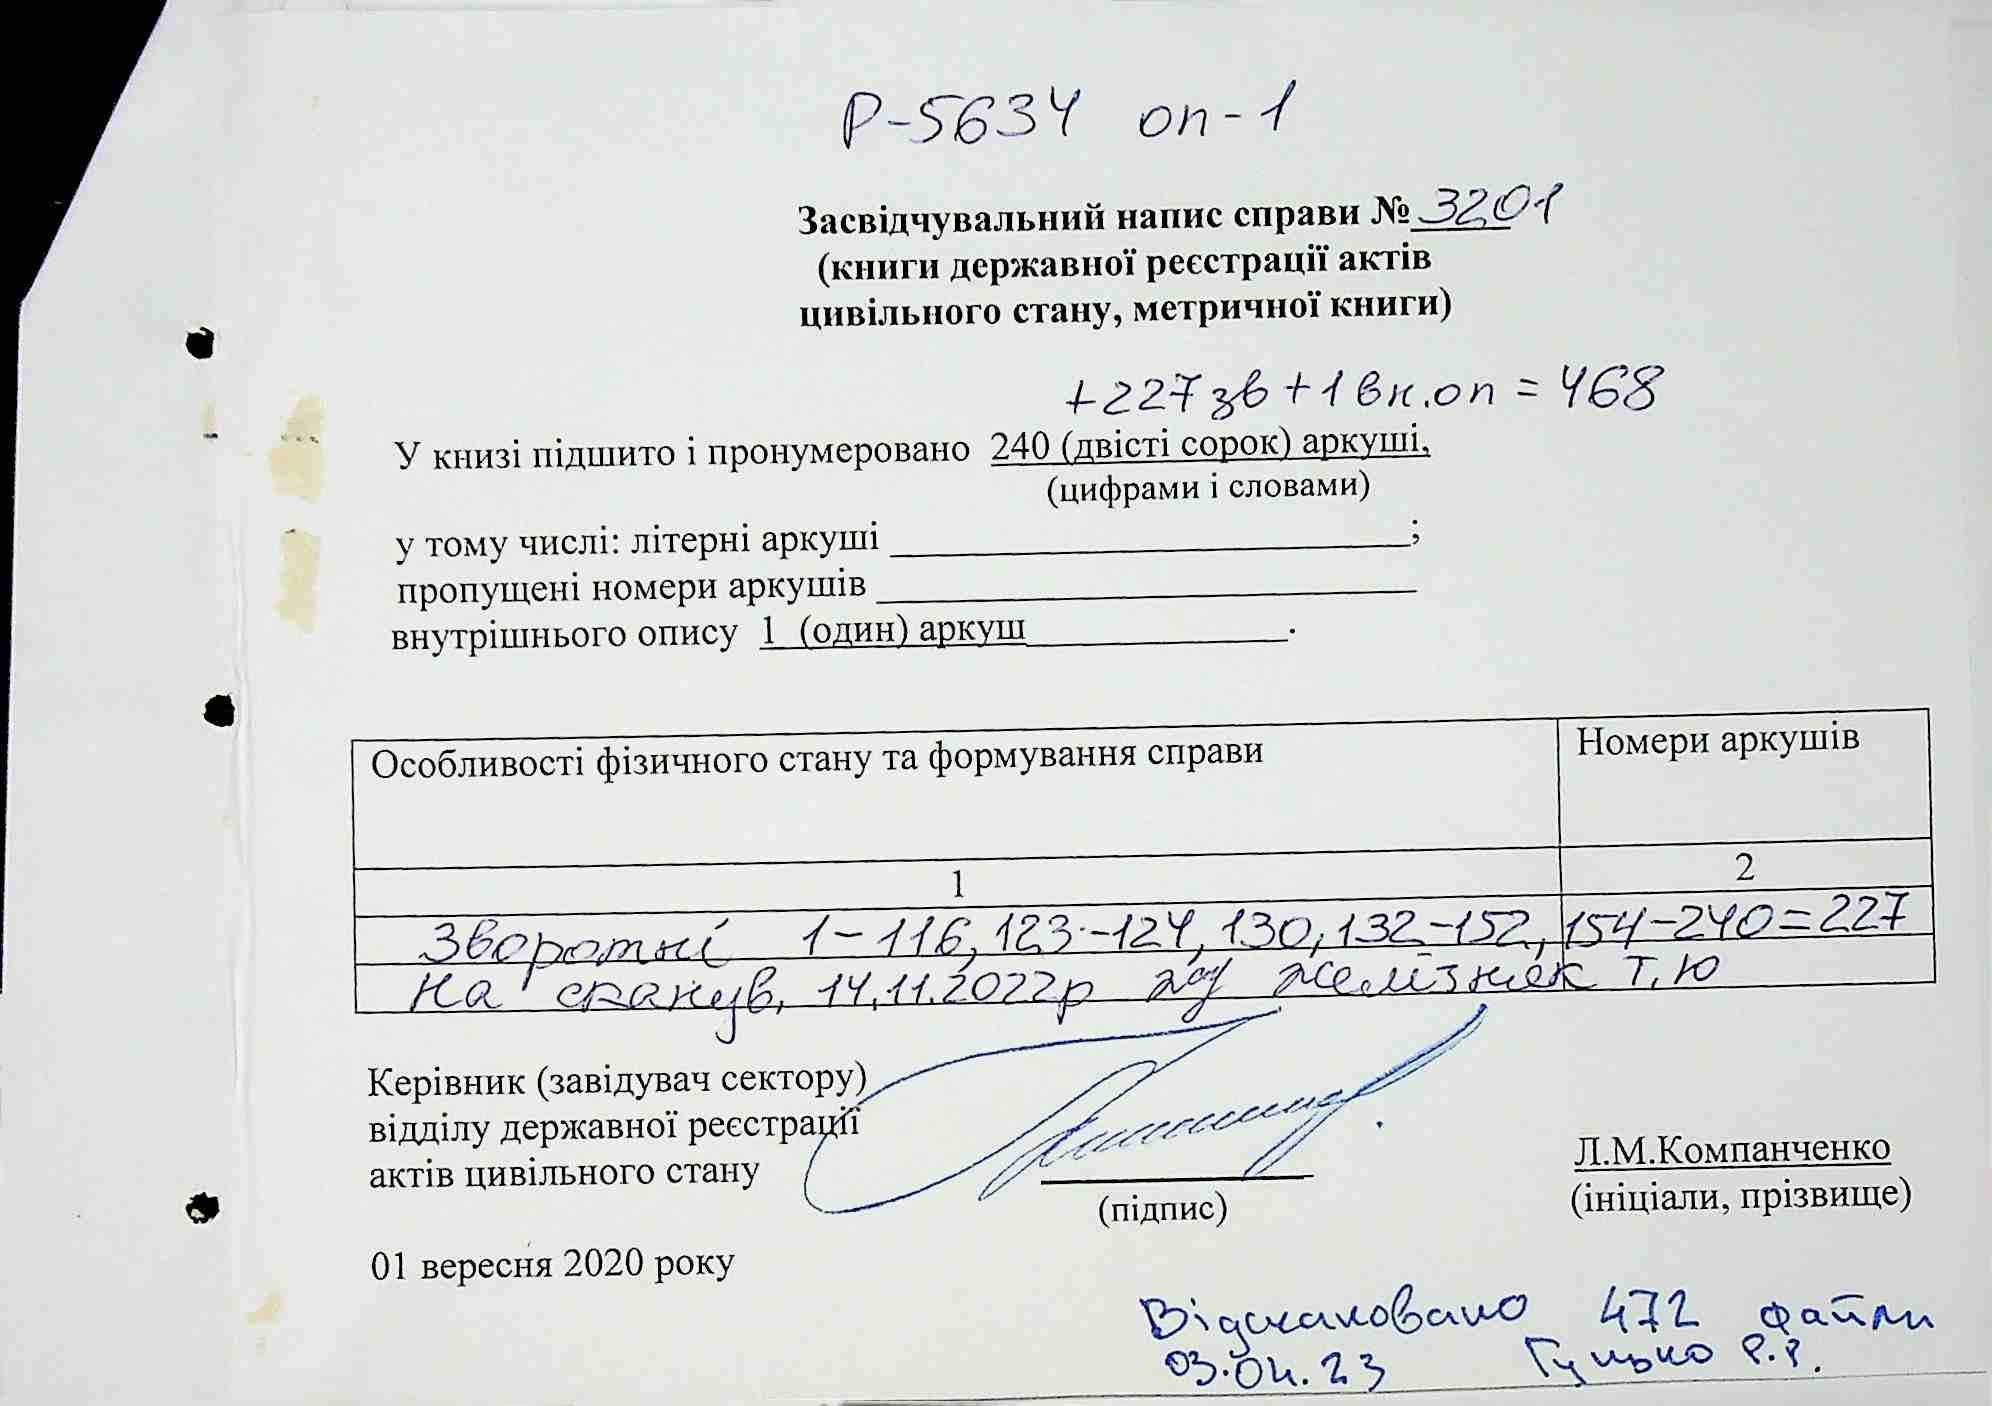 Р-5634 оп-1
Засвідчувальний напис справи № 3201
(книги державної реєстрації актів
цивільного стану, метричної книги)
+227 зв + 1 вн.оп = 468
У книзі підшито і пронумеровано 240 (двісті сорок) аркуші,
(цифрами і словами)
у тому числі: літерні аркуші ;
пропущені номери аркушів
внутрішнього опису 1 (один) аркуш .
Особливості фізичного стану та формування справи Номери аркушів
1 2
Зворотні 1-116, 123-124, 130, 132-152, 154-240=227
На сканув, 14.11.2022р Желізняк Т.Ю
Керівник (завідувач сектору)
відділу державної реєстрації
актів цивільного стану
Л.М.Компанченко
(підпис) (ініціали, прізвище)
01 вересня 2020 року
Відскановано 472 файли
03.04.23 Гулько Р.Р.